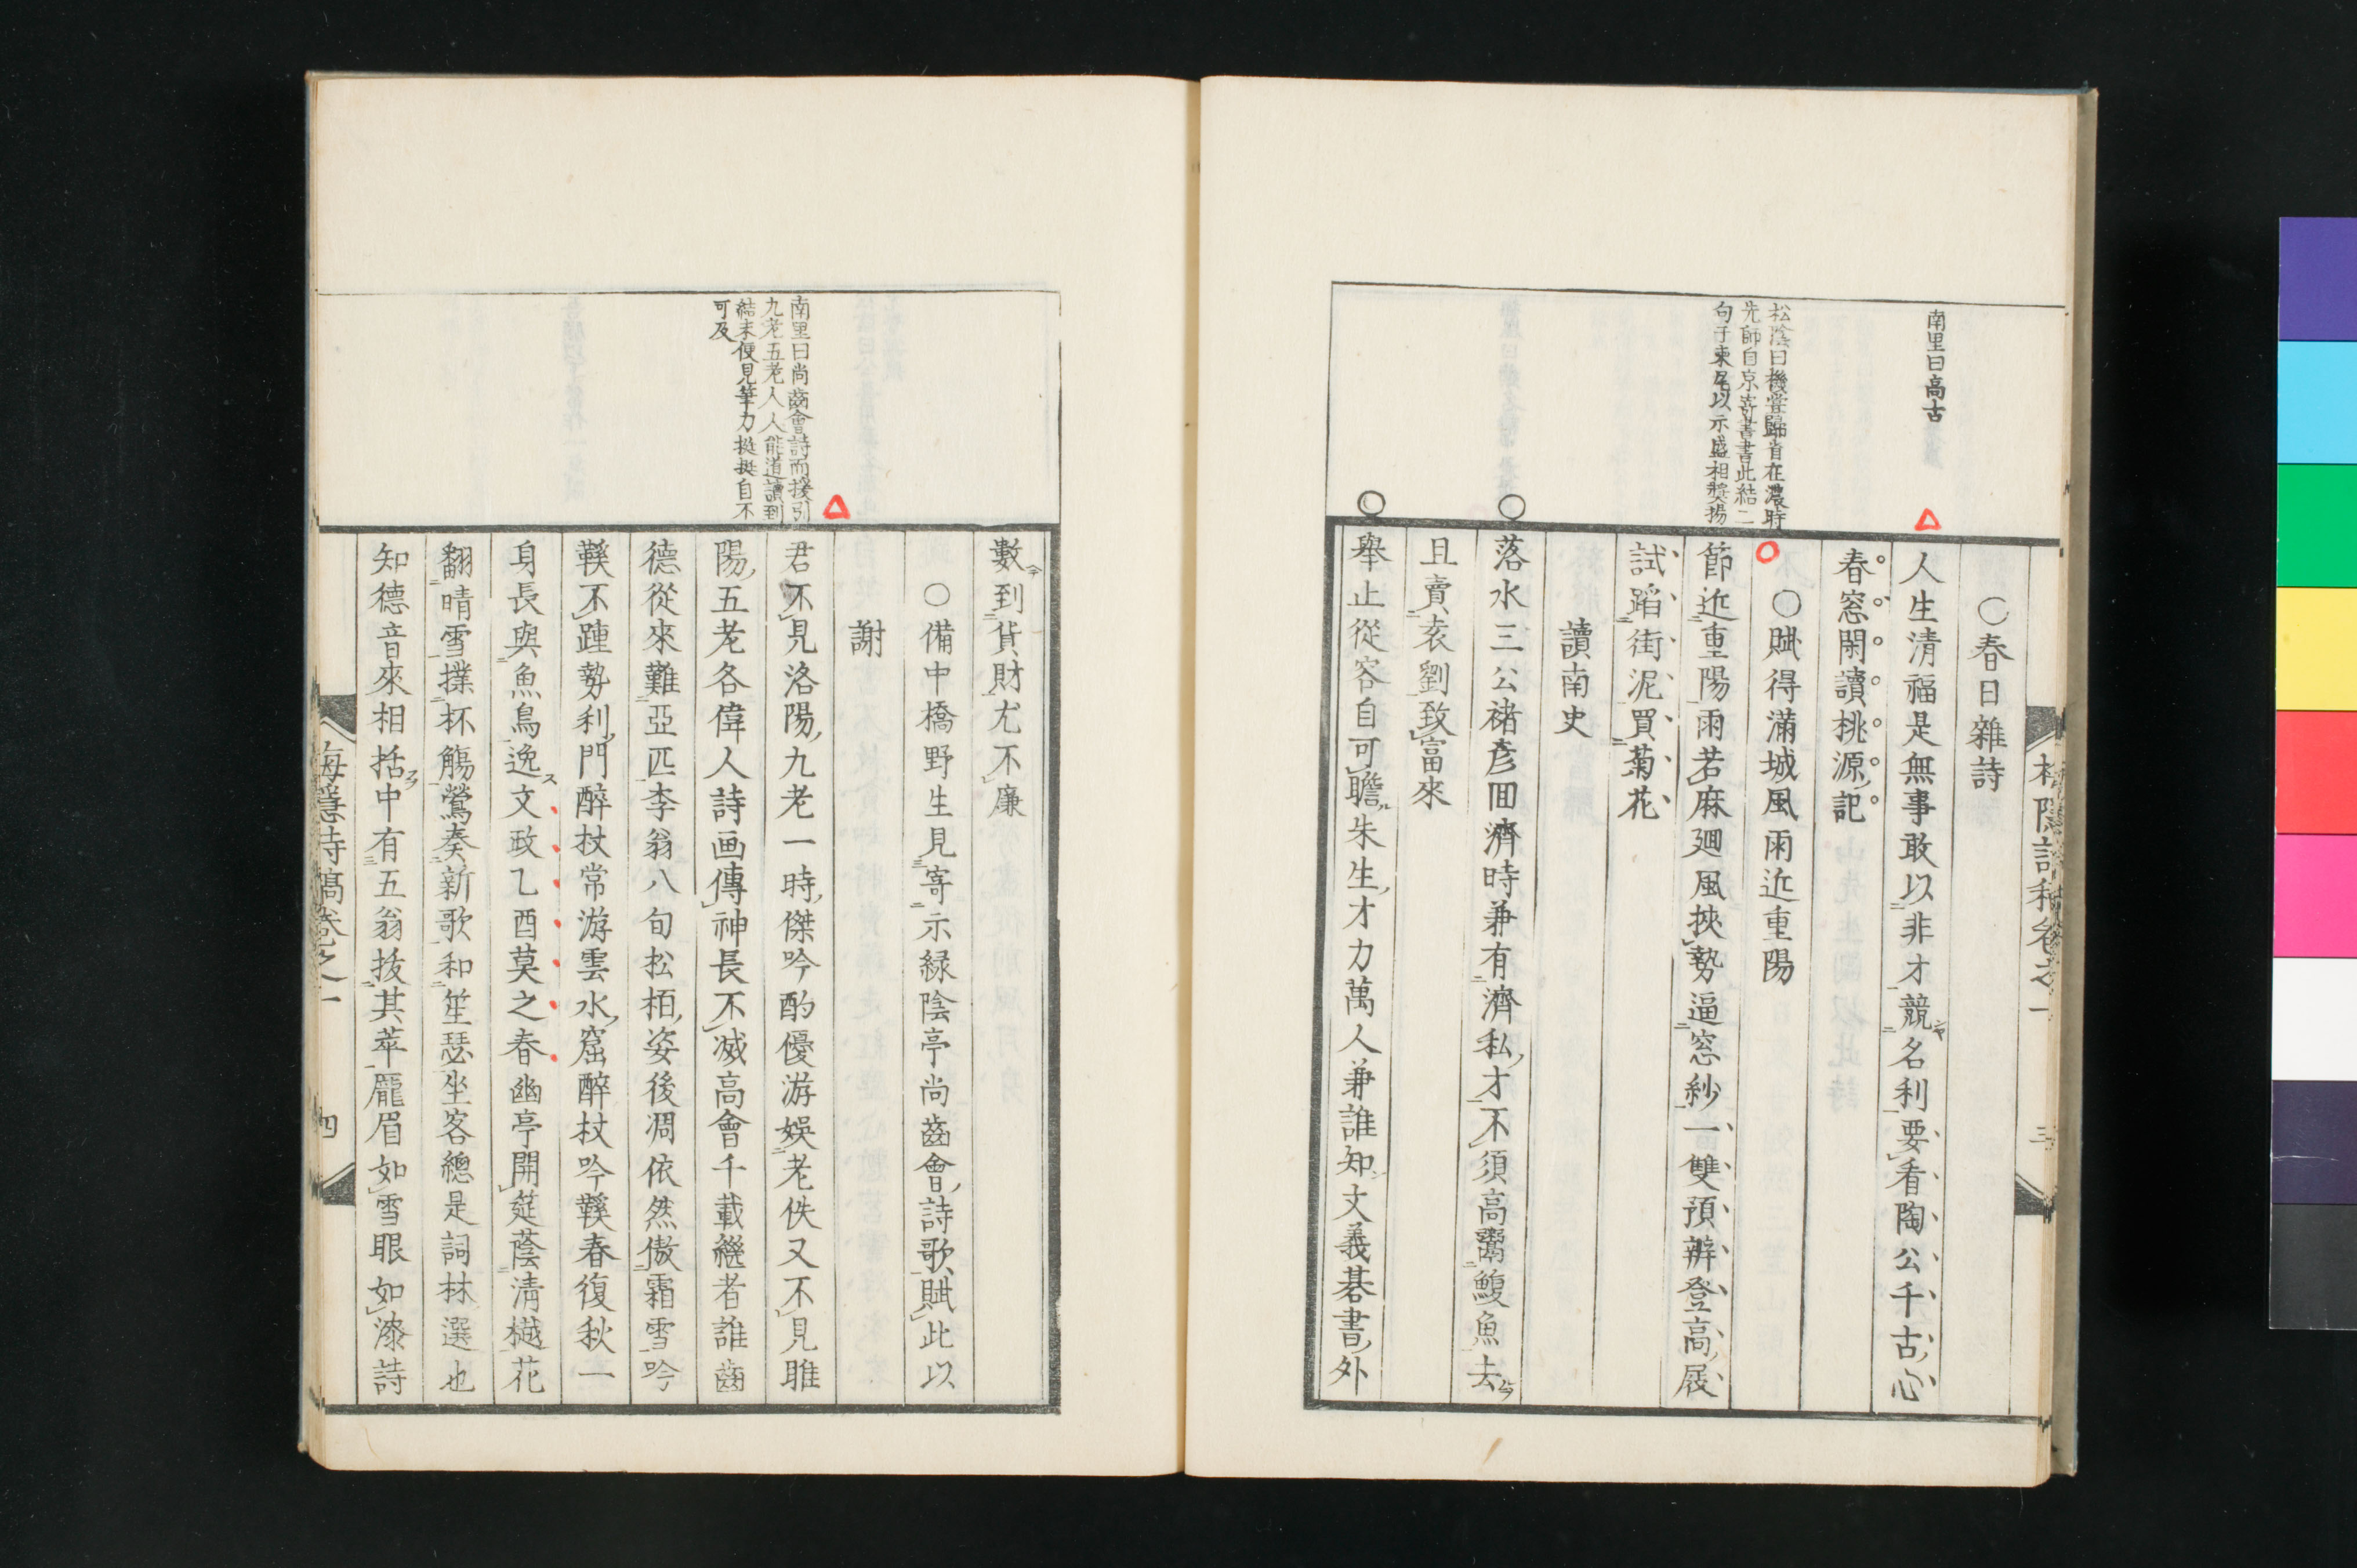 南里曰高古
松陰曰機堂歸省在濃時
先師自京寄書書此結二
句于柬尾以示盛相奬揚
〇春日雜詩
人生清福是無事敢以非才競名利要看陶公千古心
春窓閑讀桃源記
〇賦得滿城風雨近重陽
節近重陽雨若麻廻風挾勢逼窓紗一雙預辨登高屐
試蹈街泥買菊花
讀南史
落水三公褚彥回濟時兼有濟私才不須高鬻鰒魚去
且賣袁劉致富來
擧止從容自可瞻朱生才力萬人兼誰知文義碁書外
三
南里曰尚齒會詩而援引
九老五老人人能道讀到
結末便見筆力挺挺自不
可及
數到貨財尤不廉
〇備中橋野生見寄示緑陰亭尚齒會詩歌賦此以
謝
君不見洛陽九老一時傑吟酌優游娛老佚又不見睢
陽五老各偉人詩画傳神長不滅高會千載繼者誰齒
德從來難亞匹李翁八旬松栢姿後凋依然傲霜雪吟
鞵不踵勢利門醉杖常游雲水窟醉杖吟鞵春復秋一
身長與魚鳥逸文政乙酉莫之春幽亭開筵蔭清樾花
翻晴雪撲杯觴鶯奏新歌和笙瑟坐客總是詞林選也
知德音來相括中有五翁拔其萃龐眉如雪眼如漆詩
梅隱詩稿卷之一
四